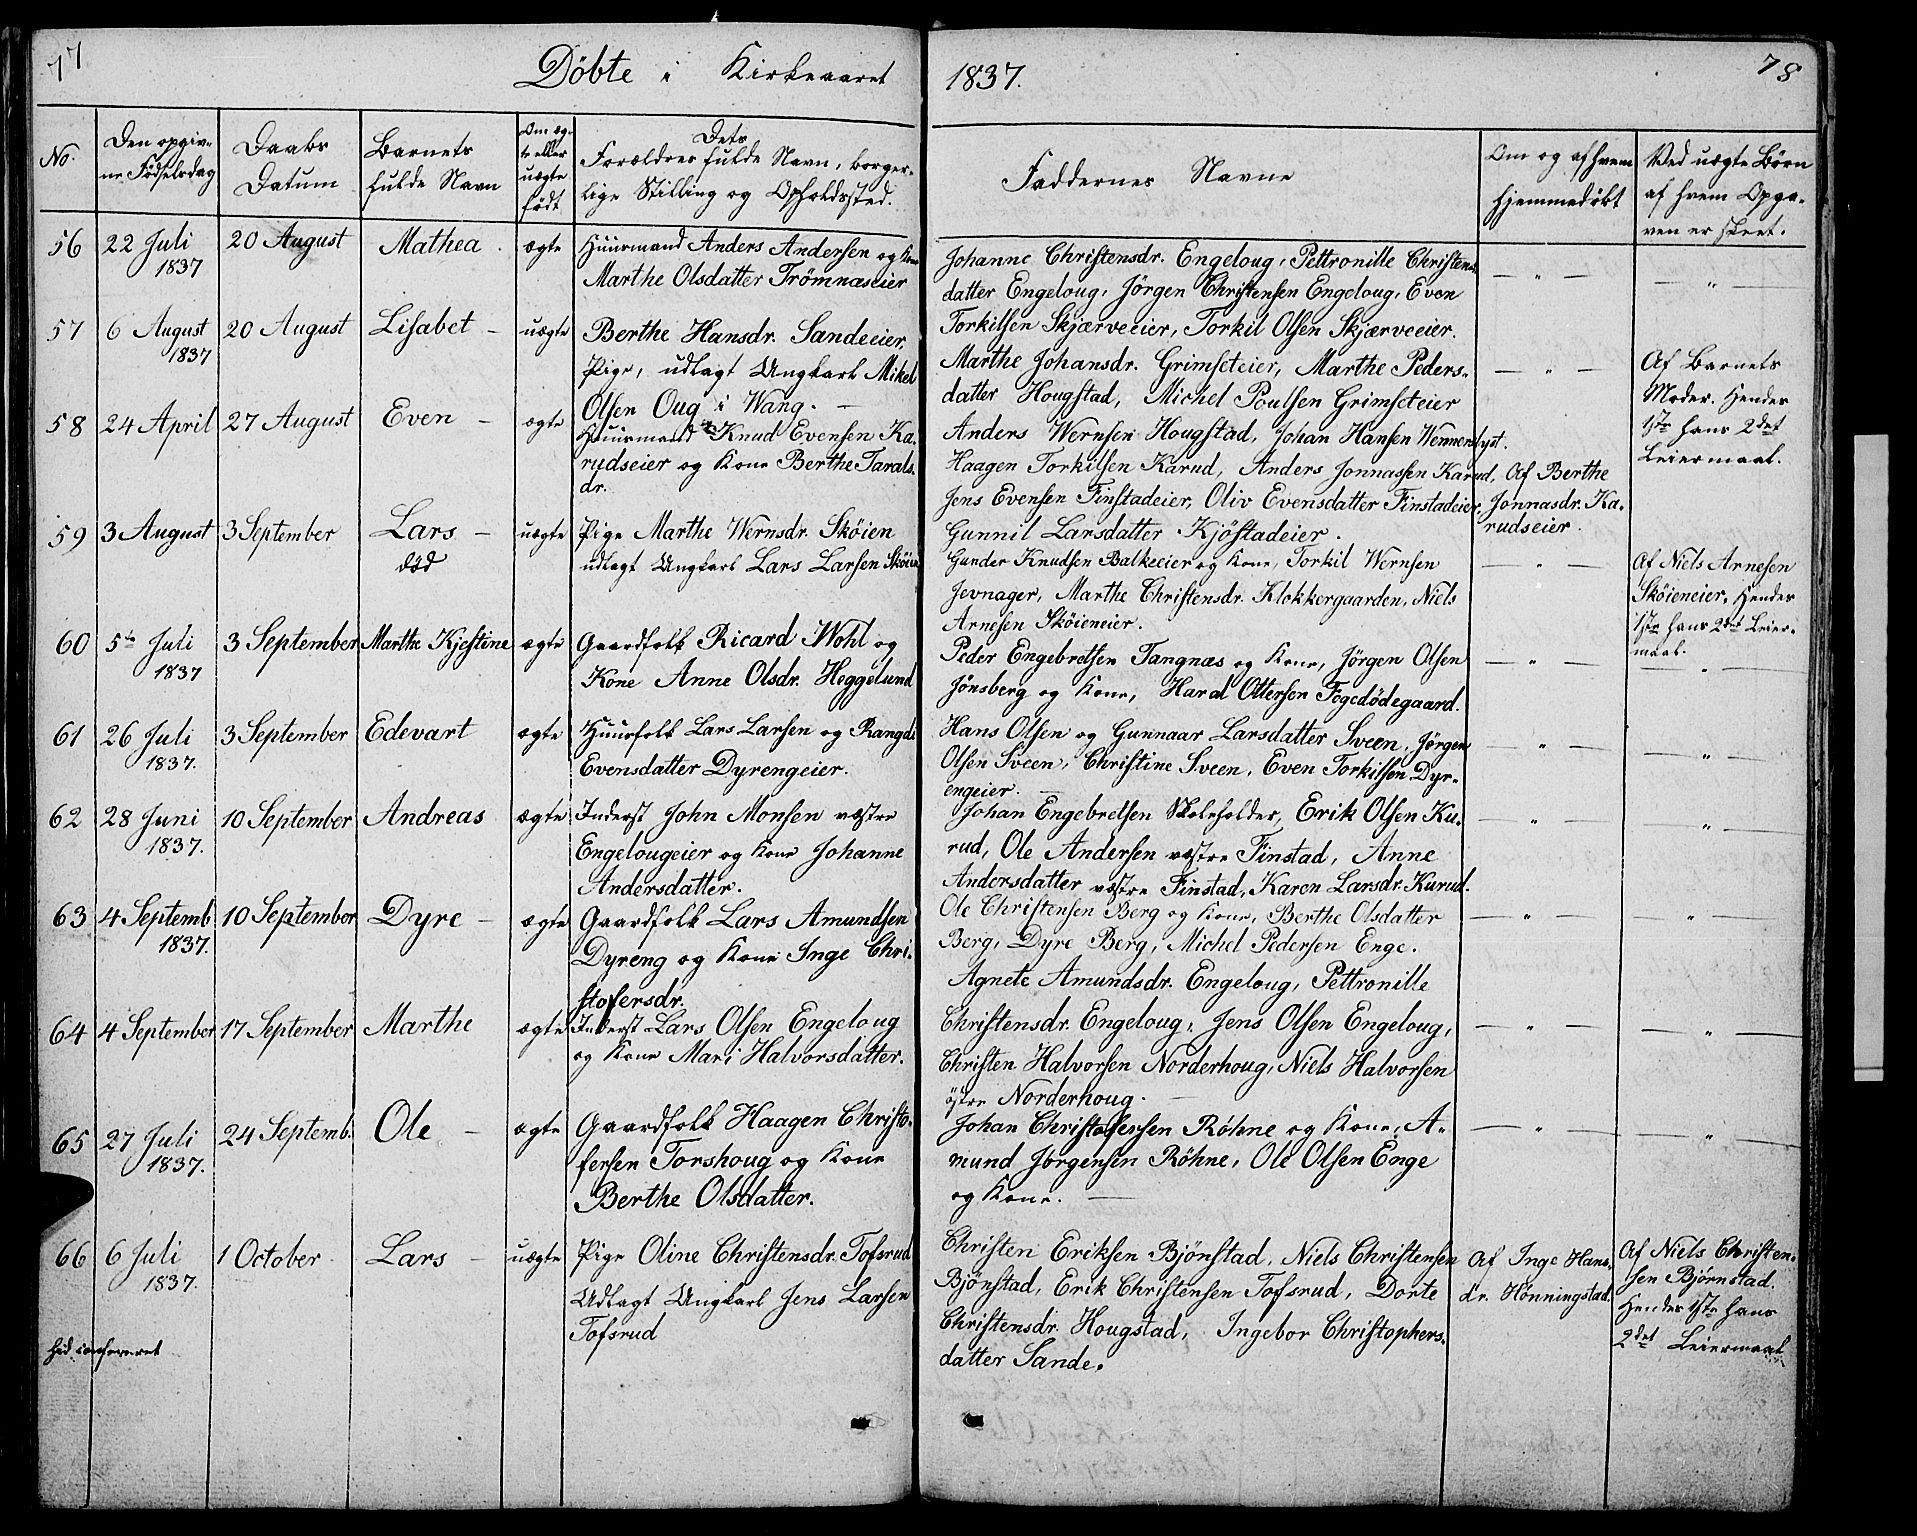 77
Döbte i Kirkeaaret
1837.
78
No.
Den opgiv-
ne Födselsdag
Daabs
Datum
Barnets
fulde Navn
Om æg-
te eller
uægte
födt
Dets
Forældres fulde Navn, borger-
lige Stilling og Opholdssted.
Faddernes Navne
Om og af hvem
hjemmedöbt
Ved uægte Börn
af hvem Opga-
ven er skeet.
56
22 Juli
1837
20 August
Mathea
ægte
Huusmand Anders Andersen og Kone
Marthe Olsdatter Trömnæseier
Johanne Christensdr. Engeloug, Pettronille Christens-
datter Engeloug, Jörgen Christensen Engeloug, Even
Torkilsen Skjærveeier, Torkil Olsen Skjærveeier.
— " —
— " —
57
6 August
1837
20 August
Lisabet –
uægte
Berthe Hansdr. Sandeeier,
Pige, udlagt Ungkarl Mikel
Olsen Oug i Wang. —
Marthe Johansdr. Grimseteier, Marthe Peders-
datter Hougstad, Michel Poulsen Grimseteier
Anders Wernsen Hougstad, Johan Hansen Wennerslyst.
— " —
Af Barnets
Moder. Hendes
1ste hans 2det
Leiermaal.
58
24 April
27 August
Even –
ægte
Huusmand Knud Evensen Ka-
rudseier og Kone Berthe Tarals-
dr.
Haagen Torkilsen Karud, Anders Jonnassen Karud,
Jens Evensen Finstadeier, Oliv Evensdatter Finstadeier,
Gunnil Larsdatter Kjöstadeier.
Af Berthe
Jonnasdr. Ka-
rudseier.
59
3 August
3 September
Lars –
död
uægte
Pige Marthe Wernsdr. Sköien
udlagt Ungkarl Lars Larsen Sköien
Gunder Knudsen Balkeeier og Kone, Torkil Wernsen
Jevnager, Marthe Christensdr. Klokkergaarden, Niels
Arnesen Sköieneier.
— " —
Af Niels Arnesen
Sköieneier, Hendes
1ste hans 2det Leier-
maal.
60
5te Juli
1837
3 September
Marthe Kjestine
ægte
Gaardfolk Ricard Wohl og
Kone Anne Olsdr. Heggelund
Peder Engebretsen Tangnæs og Kone, Jörgen Olsen
Jönsberg og Kone, Haral Ottersen Fogedödegaard.
— " —
— " —
61
26 Juli
1837.
3 September
Edevart
ægte
Huusfolk Lars Larsen og Rangdi
Evensdatter Dyrengeier.
Hans Olsen og Gunnaar Larsdatter Sveen, Jörgen
Olsen Sveen, Christine Sveen, Even Torkilsen Dyr-
engeier.
— " —
— " —
62
28 Juni
1837.
10 September
Andreas
ægte
Inderst John Monsen væstre
Engelougeier og Kone Johanne
Andersdatter.
Johan Engebretsen Skoleholder, Erik Olsen Ku-
rud, Ole Andersen væstre Finstad, Anne
Andersdatter væstre Finstad, Karen Larsdr. Kurud.
— " —
— " —
63
4 Septemb.
1837.
10 September
Dyre –
ægte
Gaardfolk Lars Amundsen
Dyreng og Kone Inge Chri-
stofersdr.
Ole Christensen Berg og Kone, Berthe Olsdatter
Berg, Dyre Berg, Michel Pedersen Enge.
— " —
— " —
64
4 September
17 September
Marthe
ægte
Inderst Lars Olsen Engeloug
og Kone Mari Halvorsdatter.
Agnete Amundsdr. Engeloug, Pettronille
Christensdr. Engeloug, Jens Olsen Engeloug,
Christen Halvorsen Norderhoug, Niels Halvorsen
östre Norderhoug.
— " —
— " —
65
27 Juli
1837.
24 Septemb.
Ole –
ægte
Gaardfolk Haagen Christo-
fersen Torshoug og Kone
Berthe Olsdatter.
Johan Christofersen Röhne og Kone, A-
mund Jörgensen Röhne, Ole Olsen Enge
og Kone. —
— " —
— " —
66
6 Juli
1837.
1 October
Lars –
uægte
Pige Oline Christensdr. Tofsrud
Udlagt Ungkarl Jens Larsen
Tofsrud
Christen Eriksen Bjönstad, Niels Christensen
Bjönstad, Erik Christensen Tofsrud, Dorte
Christensdr. Hougstad, Ingebor Christophers-
datter Sande.
Af Inge Hans-
dr. Hönningstad.
Af Niels Christen-
sen Björnstad.
Hendes 1ste hans
2det Leiermaal
hid confereret